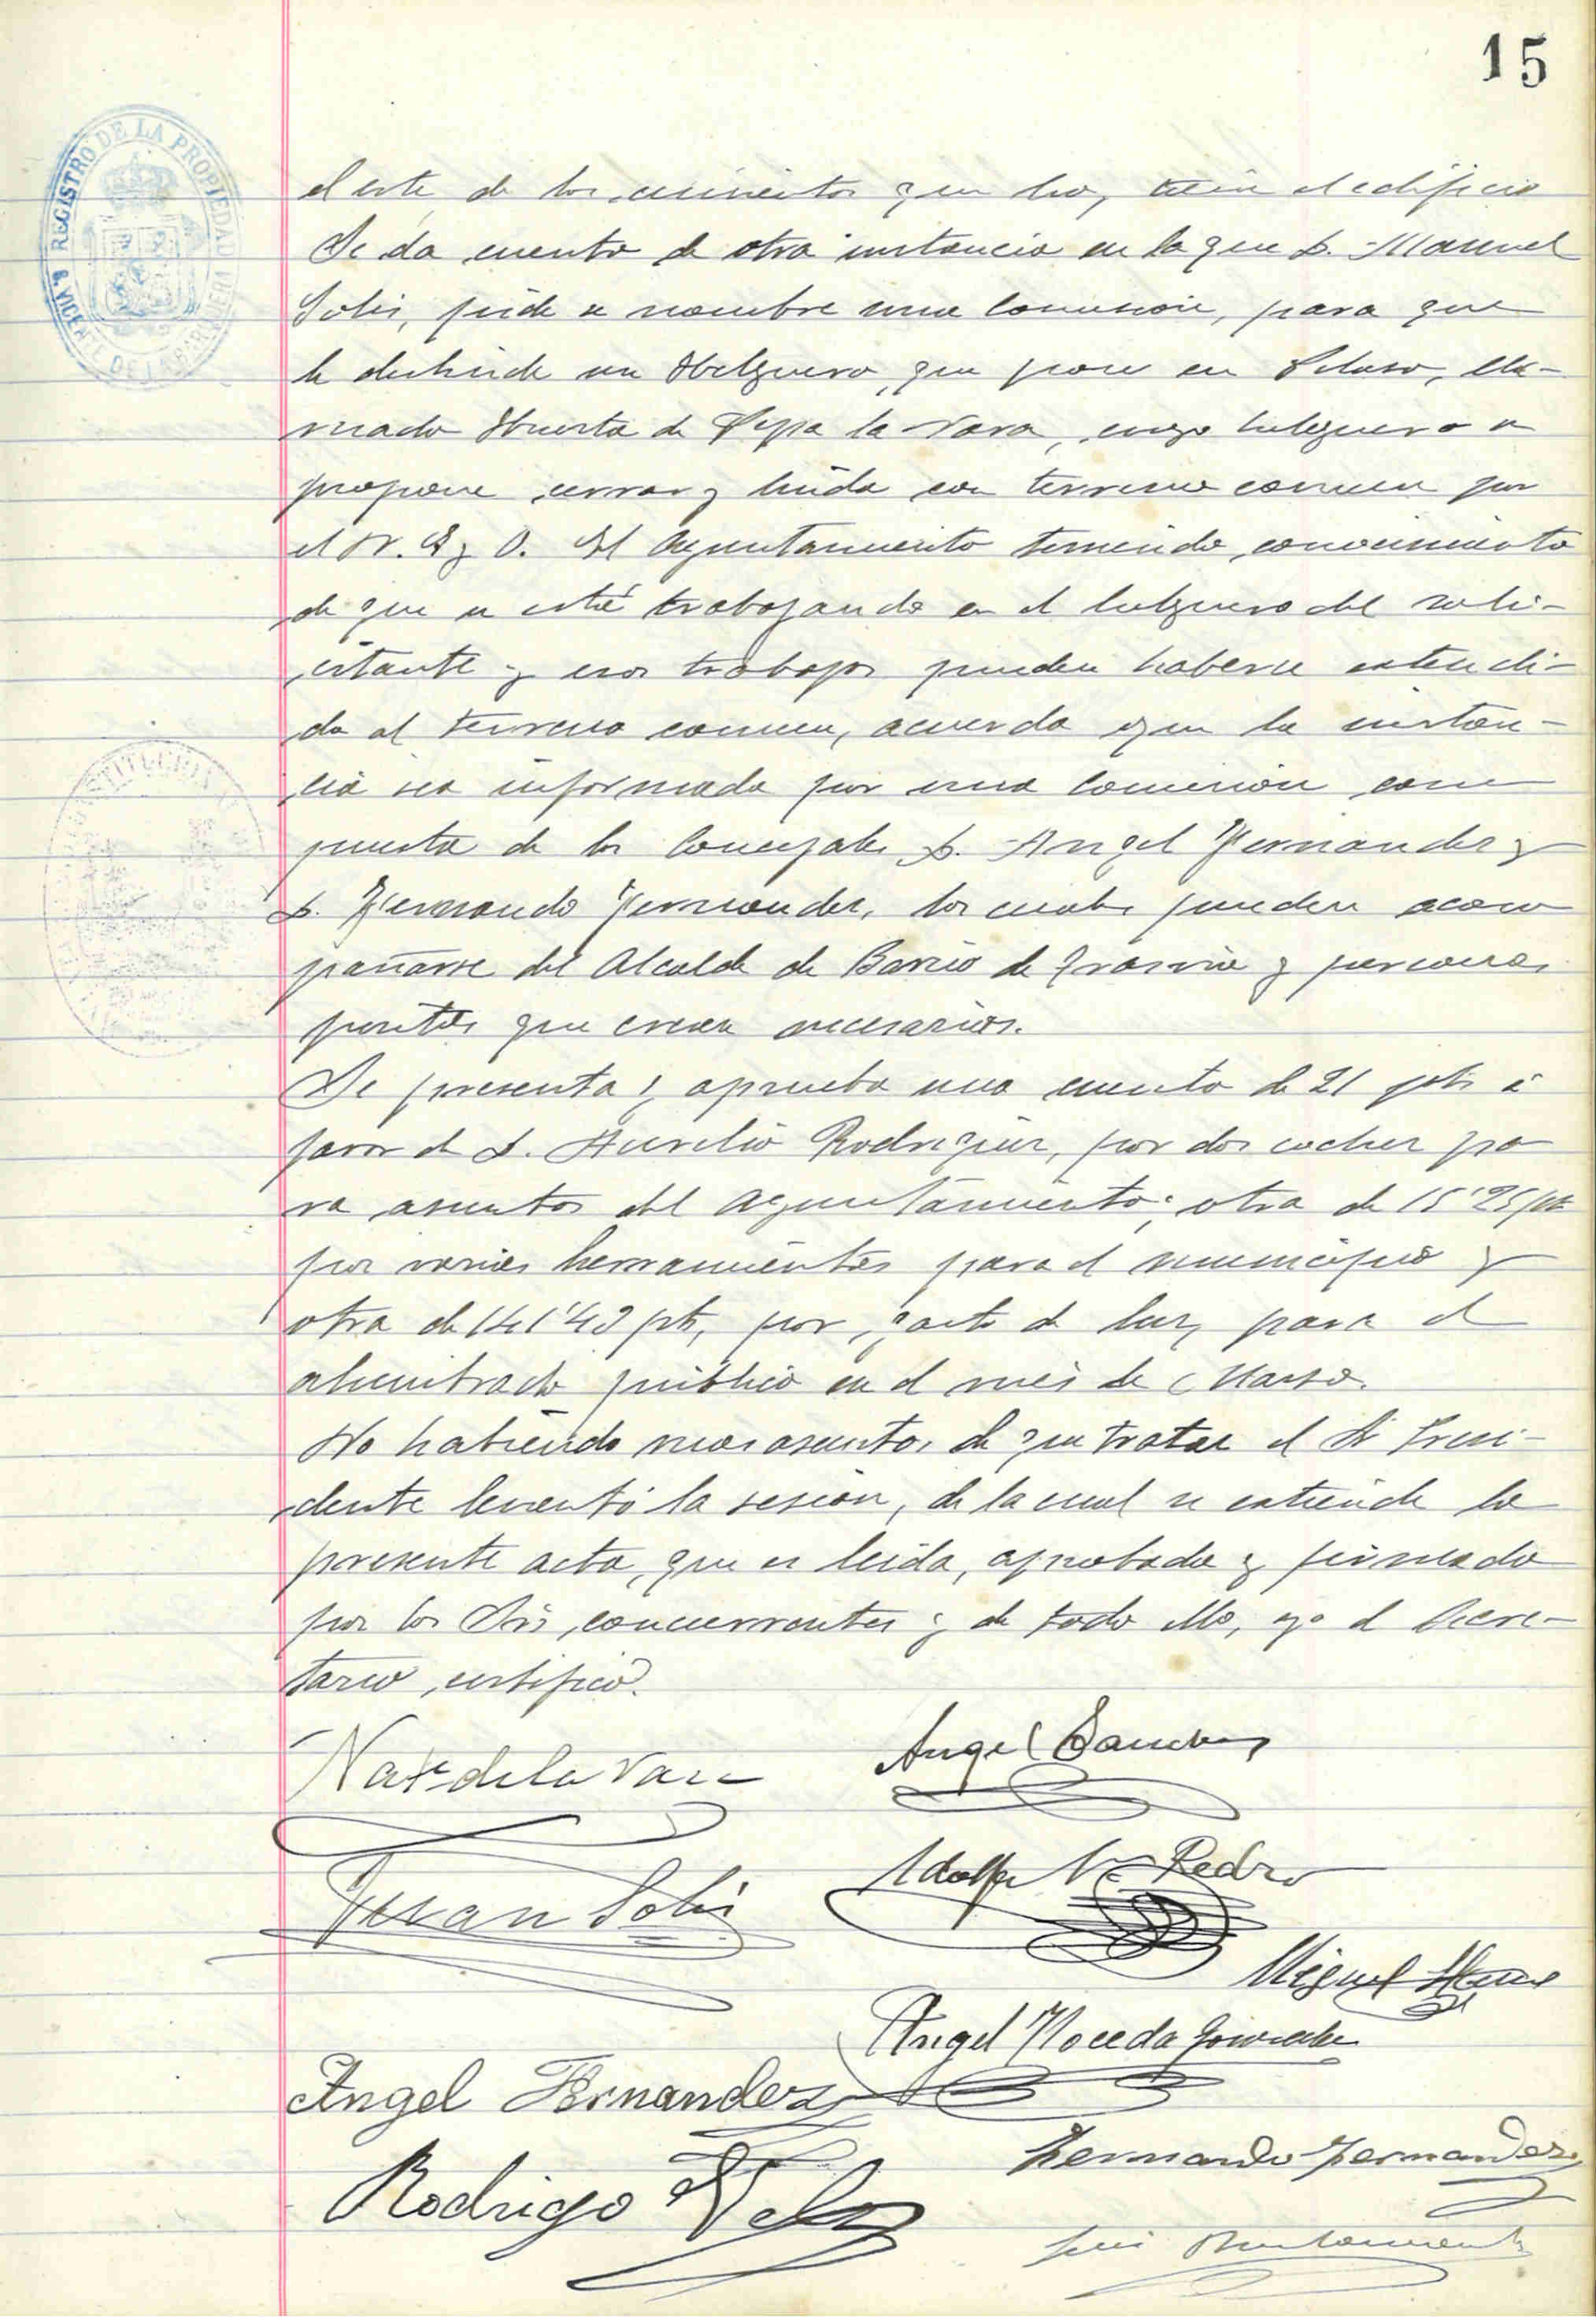 15
REGISTRO DE LA PROPIEDAD
S. VICENTE DE LA BARQUERA
el este de los cimientos que hoy tiene el edificio
Se da cuenta de otra instancia en la que D. Manuel
Solis, pide se nombre una Comision, para que
le deslinde un Helguero, que posee en
mado Huerta de Pepa la Vara, cuyo helguero se
propone cerrar y linda con terreno comun por
el N. S y O. El Ayuntamiento teniendo conocimiento
de que se está trabajando en el helguero del soli-
citante y esos trabajos pueden haberse extendi-
do al terreno comun, acuerda que la instan-
cia sea informada por una Comision com
puesta de los Concejales D. Angel Fernandez y
D. Fernando Fernandez, los cuales pueden acom
pañarse del Alcalde de Barrio de y personas
peritas que crean necesarios.
Se presenta y aprueba una cuenta de 21 pts á
favor de D. Aurelio Rodriguez, por dos coches pa
ra asuntos del Ayuntamiento; otra de 15'25 pts
por varias herramientas para el municipio y
otra de 141'43 pts, por gasto de luz, para el
alumbrado público en el mes de Marzo.
No habiendo mas asuntos de que tratar el Sr Presi-
dente levantó la sesion, de la cual se extiende la
presente acta, que es leida, aprobada y firmada
por los Srs, concurrentes y de todo ello, yo el Secre-
tario, certifico.
Nat de la Vara
Angel Sanchez
Juan Solis
Adolfo Pedro
Miguel
Angel Noceda Gonzalez
Angel Fernandez
Fernando Fernandez
Rodrigo Velez
Luis Bustamante